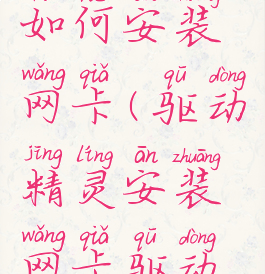 如何安装
wǎng qiǎ qū dòng
网卡(驱动
jīng líng ān zhuāng
精灵安装
wǎng qiǎ qū dòng
网卡驱动